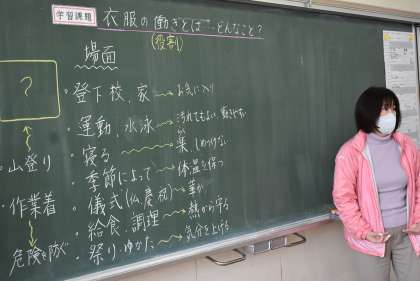 学習課題
衣服の働きとは…どんなこと?
(役割)
場面
?
・登下校、家→お気に入り
・運動、水泳→汚れてもよい、動きやすい
・寝る→楽 しめつけない
・季節によって→体温を保つ
・儀式(仏、慶祝)→華か
・給食、調理→熱から守る
・祭り、ゆかた→気分を上げる
・山登り
・作業着
危険を防ぐ